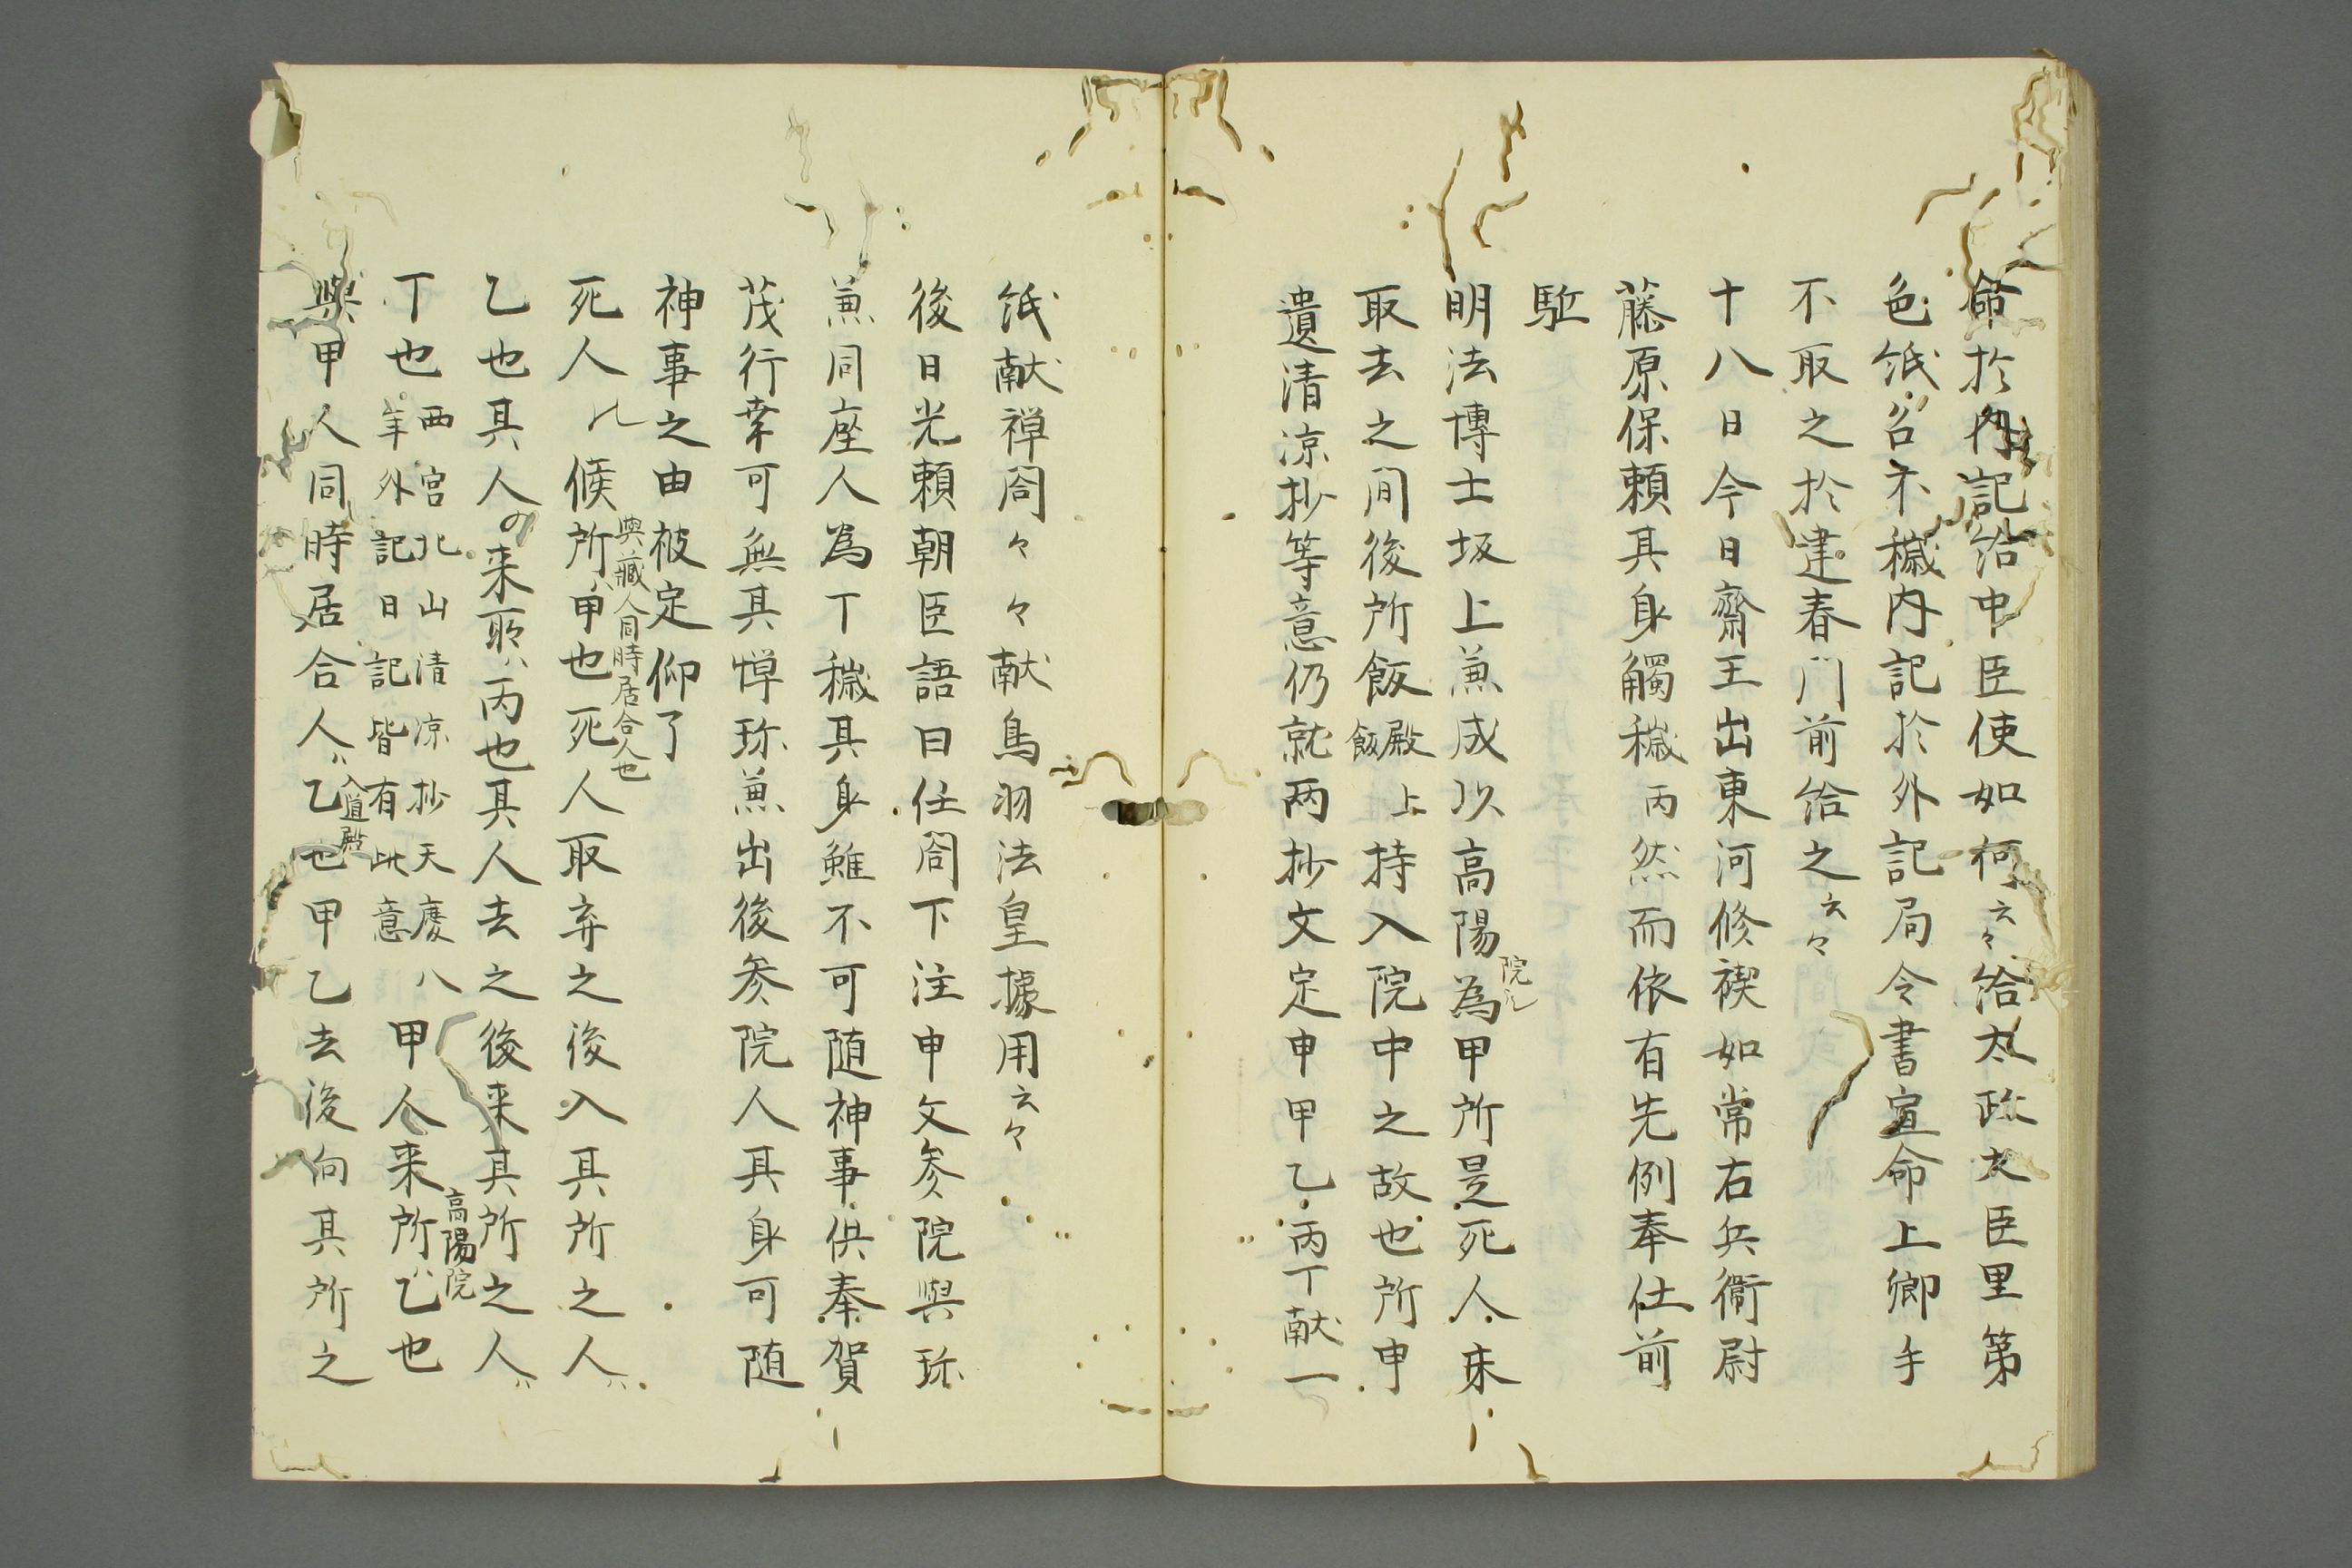 命於内記給中臣使如何云々給太政大臣里第
色紙召不穢内記於外記局令書宣命上卿手
不取之於建春門前給之云々
十八日今日齋王出東河修禊如常右兵衛尉
藤原保頼其身觸穢丙然而依有先例奉仕前
駈
明法博士坂上兼成以高陽院為甲所是死人未
取去之間後所飯殿飯上持入院中之故也所申
遺清凉抄等意仍就両抄文定申甲乙丙丁献一
紙献禅閤々々献鳥羽法皇據用云々
後日光頼朝臣語曰任閤下注申文参院與珎
兼同座人為丁穢其身雖不可随神事供奉賀
茂行幸可無其憚珎兼出後参院人其身可随
神事之由被定仰了
死人候所甲也死人取弃之後入其所之人
與藏人同時居合人也
乙也其人の来取丙也其人去之後来其所之人
丁也西宮北山清凉抄天慶八
年外記日記皆有此意
甲人来所乙也
高陽院
與甲人同時居合人乙也甲乙去後向其所之
入道殿